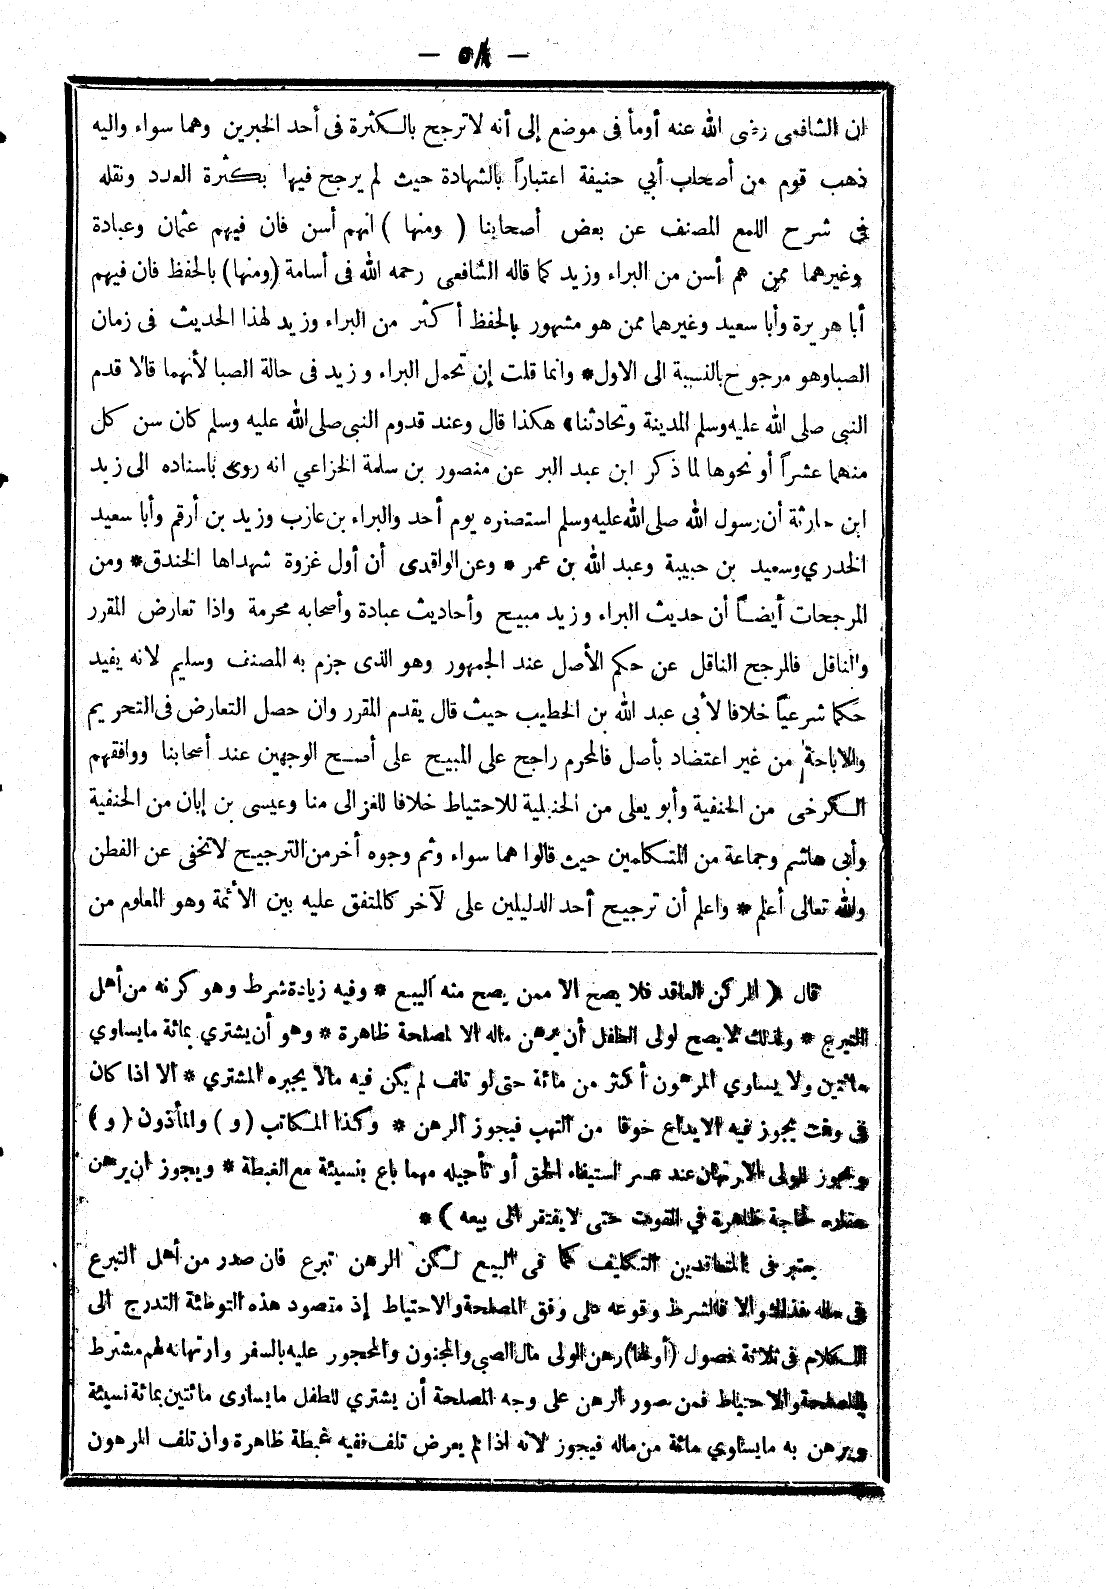 — ٥٨ —
ان الشافعى رضى الله عنه أومأ فى موضع إلى أنه لا ترجح بالكثرة فى أحد الخبرين وهما سواء واليه
ذهب قوم من أصحاب أبي حنيفة اعتباراً بالشهادة حيث لم يرجح فيها بكثرة العدد ونقله
فى شرح اللمع المصنف عن بعض أصحابنا ( ومنها ) انهم أسن فان فيهم عثمان وعبادة
وغيرهما ممن هم أسن من البراء وزيد كما قاله الشافعى رحمه الله فى أسامة (ومنها) بالحفظ فان فيهم
أبا هريرة وأبا سعيد وغيرهما ممن هو مشهور بالحفظ أكثر من البراء وزيد لهذا الحديث فى زمان
الصبا وهو مرجوح بالنسبة الى الاول * وانما قلت إن تحمل البراء وزيد فى حالة الصبا لأنهما قالا قدم
النبى صلى الله عليه وسلم المدينة وتحادثنا» هكذا قال وعند قدوم النبى صلى الله عليه وسلم كان سن كل
منهما عشراً أو نحوها لما ذكر ابن عبد البر عن منصور بن سلمة الخزاعي انه روى باسناده الى زيد
ابن حارثة أن رسول الله صلى الله عليه وسلم استصغره يوم أحد والبراء بن عازب وزيد بن أرقم وأبا سعيد
الخدري وسعيد بن حبيبة وعبد الله بن عمر * وعن الواقدى أن أول غزوة شهداها الخندق * ومن
المرجحات أيضاً أن حديث البراء وزيد مبيح وأحاديث عبادة وأصحابه محرمة واذا تعارض المقرر
والناقل فالمرجح الناقل عن حكم الأصل عند الجمهور وهو الذى جزم به المصنف وسليم لانه يفيد
حكما شرعياً خلافا لأبى عبد الله بن الخطيب حيث قال يقدم المقرر وان حصل التعارض فى التحريم
والاباحة من غير اعتضاد بأصل فالمحرم راجح على المبيح على أصح الوجهين عند أصحابنا ووافقهم
الكرخى من الحنفية وأبو يعلى من الحنبلية للاحتياط خلافا للغزالى منا وعيسى بن إبان من الحنفية
وأبى هاشم وجماعة من المتكلمين حيث قالوا هما سواء وثم وجوه أخر من الترجيح لا تخفى عن الفطن
والله تعالى أعلم * واعلم أن ترجيح أحد الدليلين على لآخر كالمتفق عليه بين الأئمة وهو المعلوم من
قال ( الركن العاقد فلا يصح الا ممن يصح منه البيع * وفيه زيادة شرط وهو كونه من أهل
التبرع * ولذلك لا يصح لولى الطفل أن يرهن ماله الا لمصلحة ظاهرة * وهو أن يشتري بمائة ما يساوي
مائتين ولا يساوي المرهون أكثر من مائة حتى لو تلف لم يكن فيه مالا يجبره المشتري * الا اذا كان
فى وقت يجوز فيه الايداع خوفا من النهب فيجوز الرهن * وكذا المكاتب (و) والمأذون (و)
ويجوز للولى الارتهان عند عسر استيفاء الحق أو تأجيله مهما باع بنسيئة مع الغبطة * ويجوز ان يرهن
عقاره لحاجة ظاهرة في القوت حتى لا يفتقر الى بيعه ) *
يعتبر فى المتعاقدين التكليف كما فى البيع لكن الرهن تبرع فان صدر من أهل التبرع
فى ماله فذلك والا فالشرط وقوعه على وفق المصلحة والاحتياط إذ مقصود هذه التوطئة التدرج الى
الكلام فى ثلاثة فصول (أولها) رهن الولى مال الصبي والمجنون والمحجور عليه بالسفر وارتهانه لهم مشترط
بالمصلحة والاحتياط فمن صور الرهن على وجه المصلحة أن يشتري للطفل ما يساوى مائتين بمائة نسيئة
ويرهن به ما يساوي مائة من ماله فيجوز لانه اذا لم يعرض تلف ففيه غبطة ظاهرة وان تلف المرهون